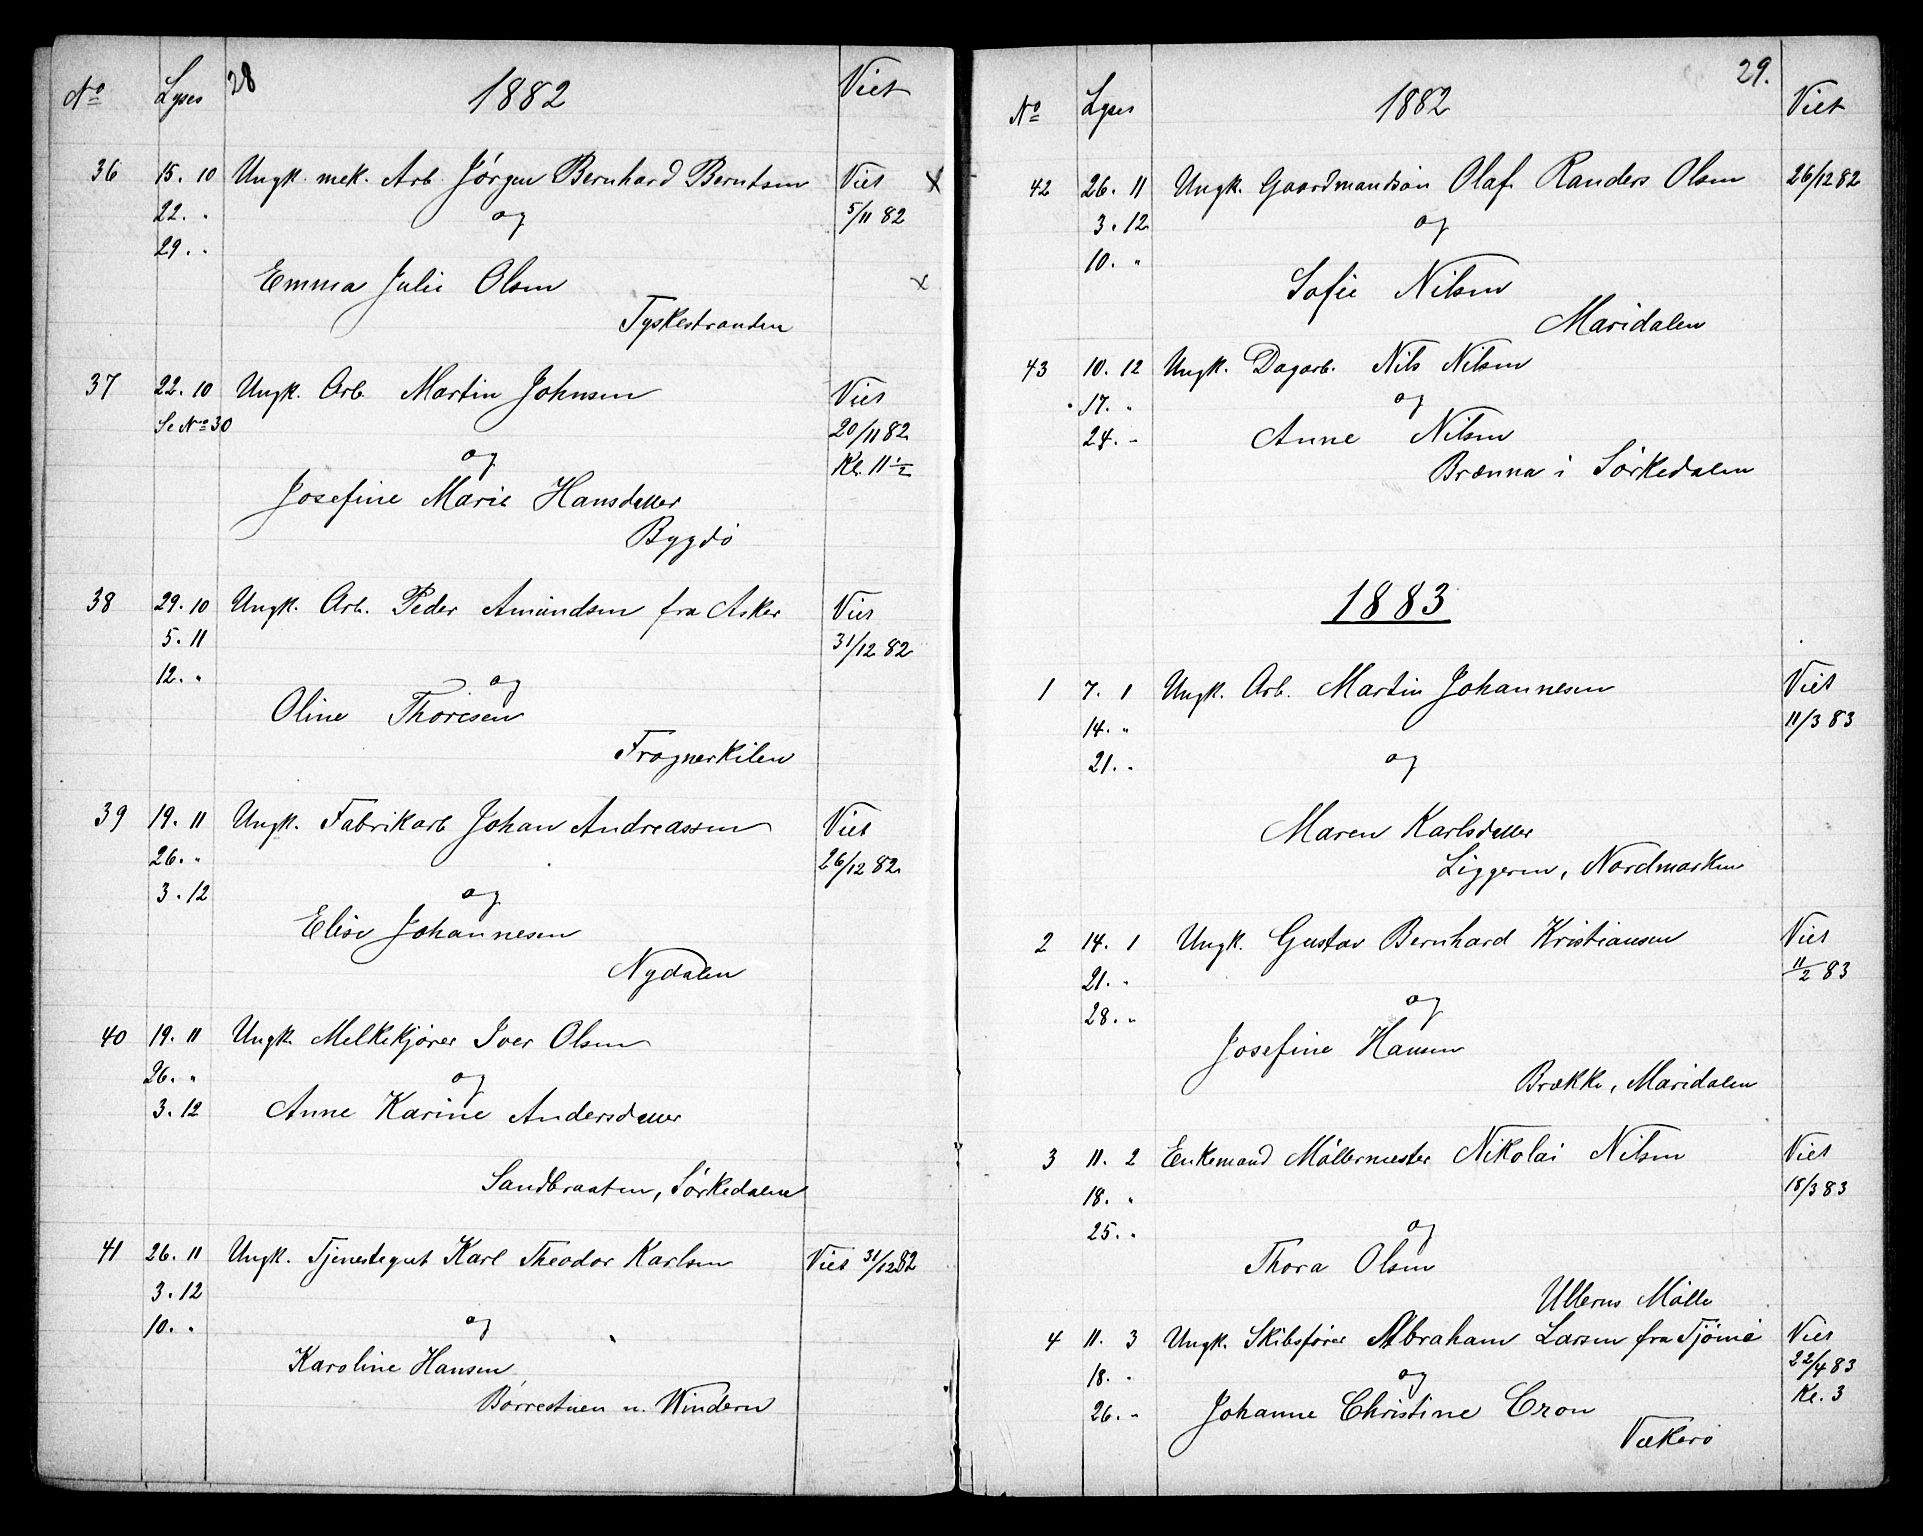 28
1882
No Lyses Viet
36 15. 10 Ungk. mek. Arb. Jörgen Bernhard Berntsen Viet x
22. " og 5/11 82
29. "
Emma Julie Olsen x
Tyskestranden
37 22. 10 Ungk. Arb. Martin Johnsen Viet
Se No 30 20/11 82
og Kl. 11 1/2
Josefine Marie Hansdatter
Bygdö
38 29. 10 Ungk. Arb. Peder Amundsen fra Asker Viet
5. 11 31/12 82
12. " og
Oline Thoresen
Frognerkilen
39 19. 11 Ungk. Fabrikarb Johan Andreassen Viet
26. " 26/12 82
3. 12 og
Elise Johannesen
Nydalen
40 19. 11 Ungk. Melkekjörer Iver Olsen
26. " og
3. 12 Anne Karine Andersdatter
Sandbraaten, Sörkedalen
41 26. 11 Ungk. Tjenestegut Karl Theodor Karlsen Viet 31/12 82
3. 12
10. " og
Karoline Hansen
Börrestuen u. Windern
29.
1882
No Lyses Viet
42 26. 11 Ungk. Gaardmandsön Olaf Randers Olsen 26/12 82
3. 12 og
10. "
Sofie Nilsen
Maridalen
43 10. 12 Ungk. Dagarb. Nils Nilsen
17. " og
24. " Anne Nilsen
Brænna i Sörkedalen
1883
1 7. 1 Ungk. Arb. Martin Johannesen Viet
14. " 11/3 83
21. " og
Maren Karlsdatter
Liggeren, Nordmarken
2 14. 1 Ungk. Gustav Bernhard Kristiansen Viet
21. " 11/2 83
28. " og
Josefine Hansen
Brække, Maridalen
3 11. 2 Enkemand Möllermester Nikolai Nilsen Viet
18. " 18/3 83
25. " og
Thora Olsen
Ullerns Mölle
4 11. 3 Ungk. Skibsförer Abraham Larsen fra Tjömö Viet
18. " og 22/4 83
26. " Johanne Christine Cron Kl. 3
Vækerö